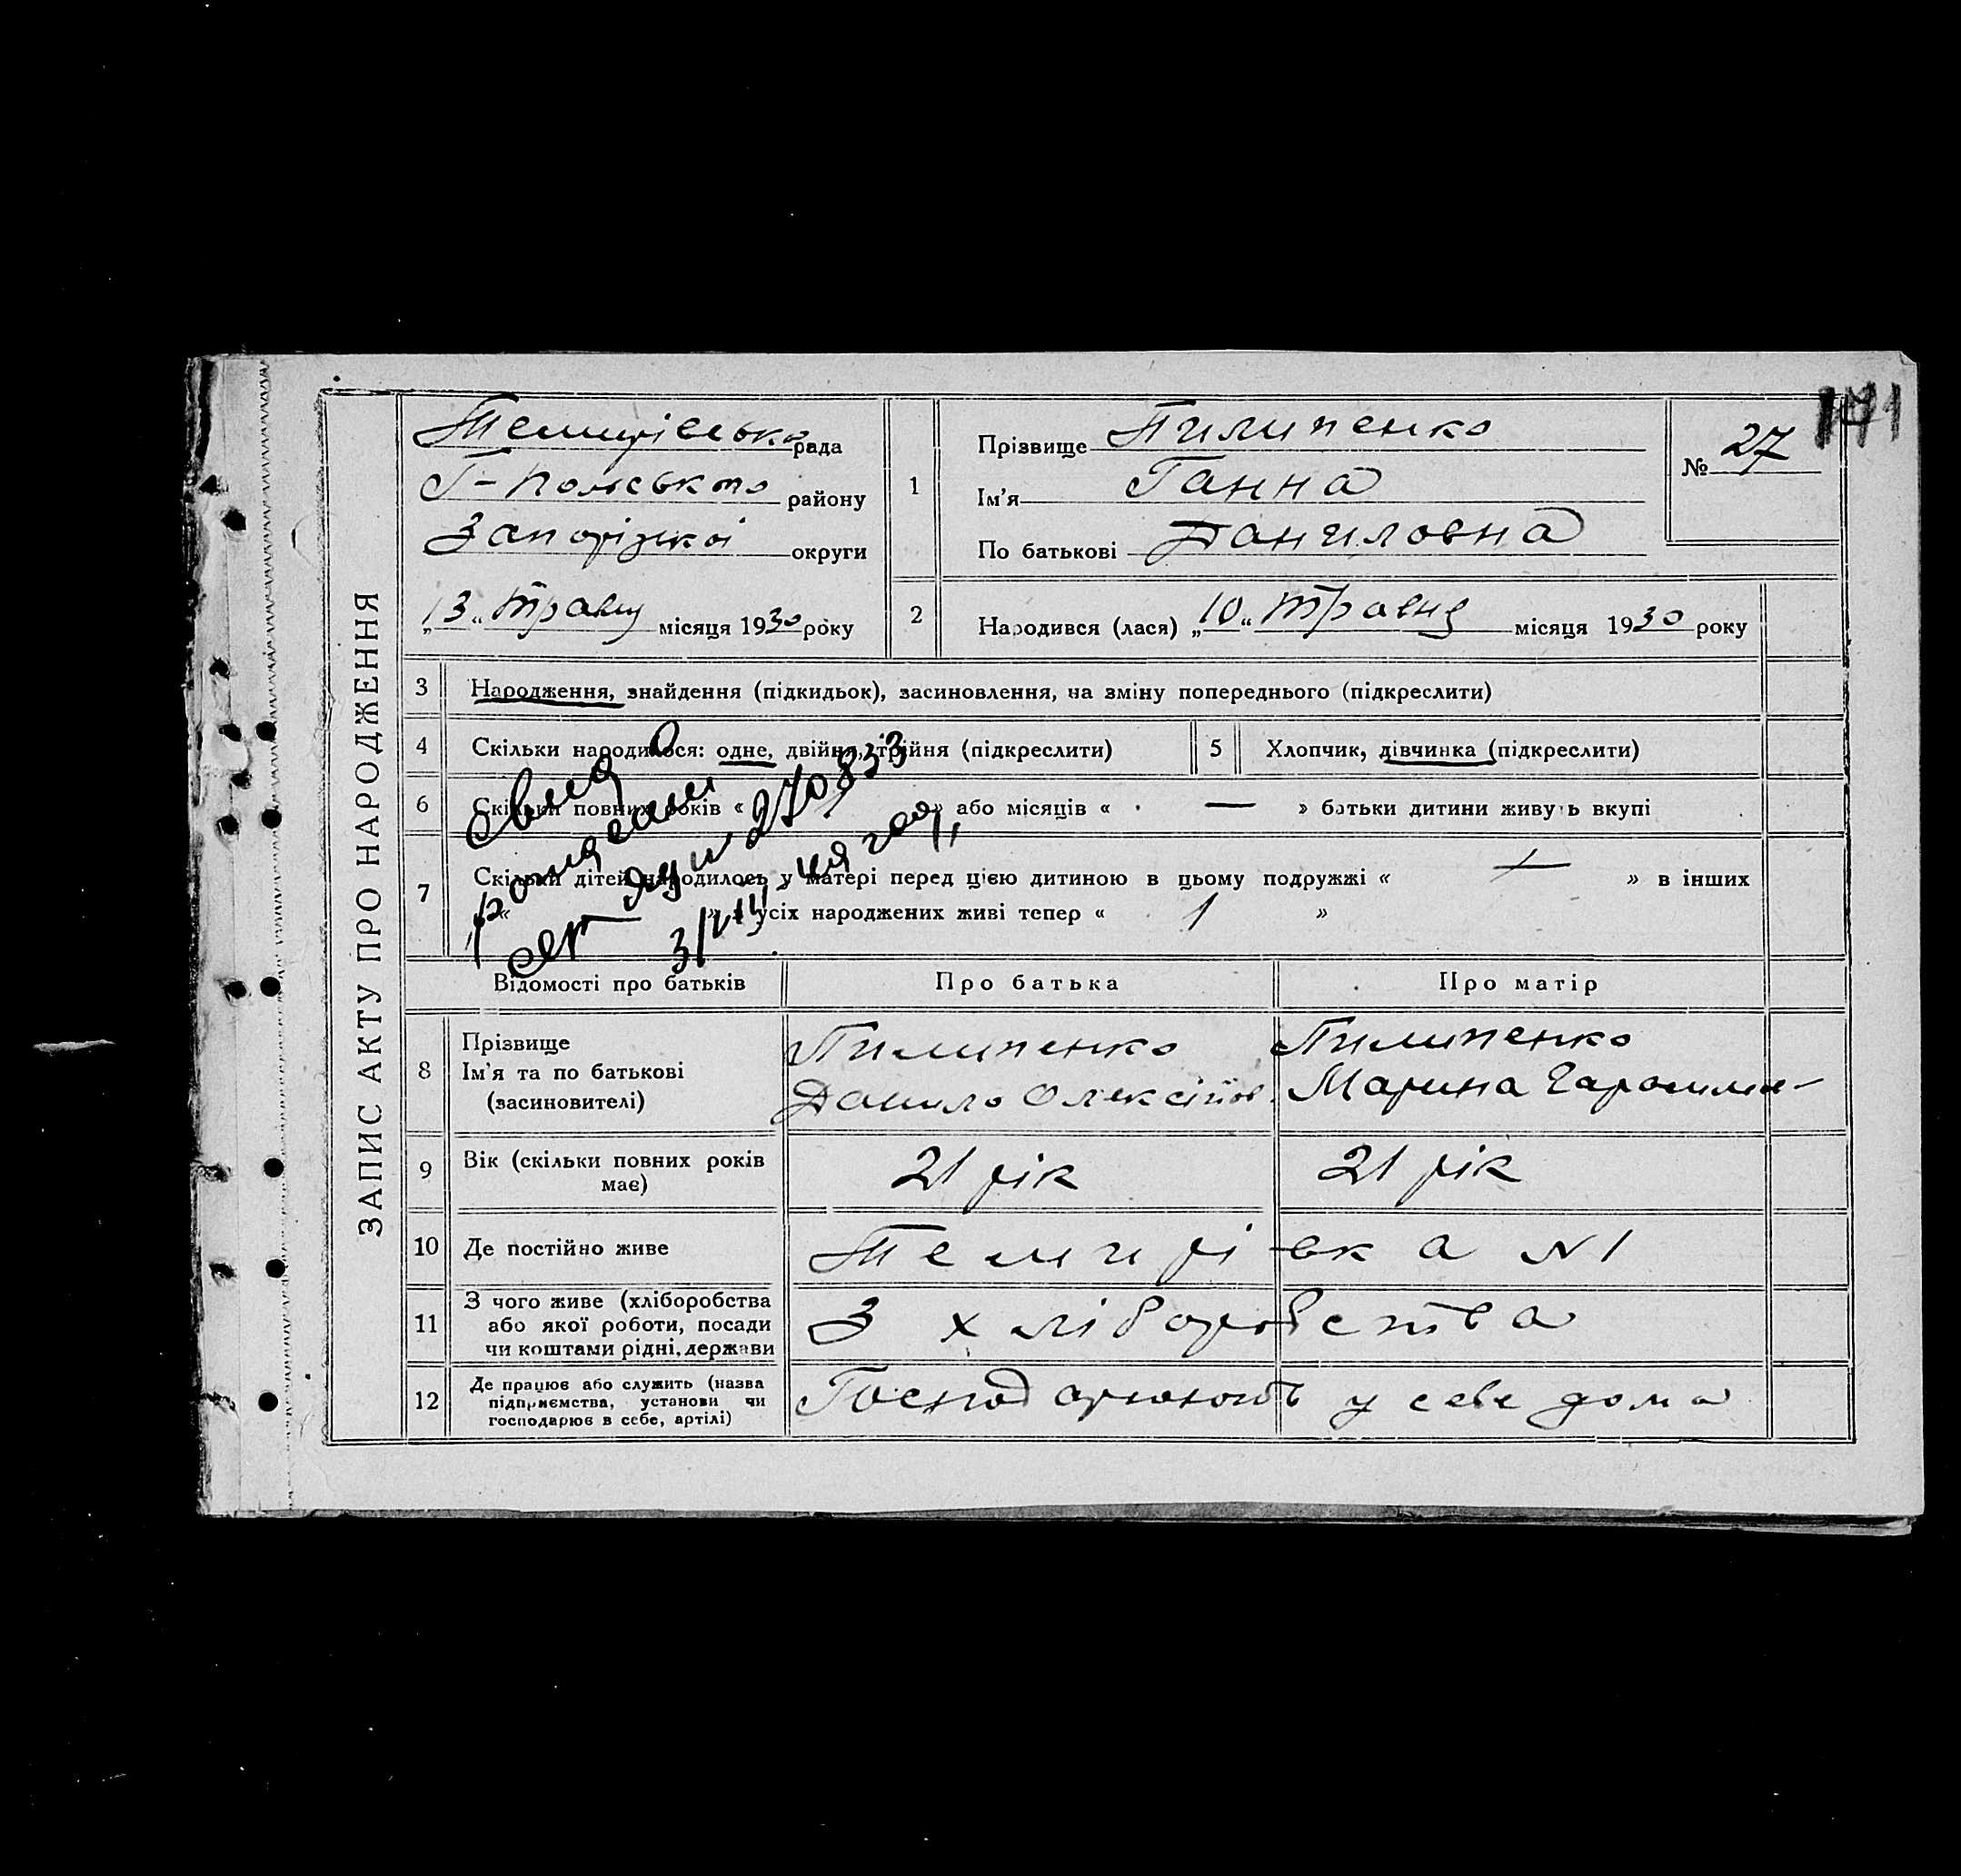 171
ЗАПИС АКТУ ПРО НАРОДЖЕННЯ
Темирівська рада
Г-Польського району
Запорізької округи
„13“ Травня місяця 1930 року
1
Прізвище Пилипенко
Ім'я Ганна
По батькові Даниловна
№ 27
2 Народився (лася) „10“ Травня місяця 1930 року
3 Народження, знайдення (підкидьок), засиновлення, на зміну попереднього (підкреслити)
4 Скільки народилося: одне, двійня, трійня (підкреслити)
5 Хлопчик, дівчинка (підкреслити)
6 Скільки повних років « » або місяців « — » батьки дитини живуть вкупі
7 Скільки дітей народилось у матері перед цією дитиною в цьому подружжі « » в інших
« » усіх народжених живі тепер « 1 »
270833
Відомості про батьків Про батька Про матір
8 Прізвище
Ім'я та по батькові
(засиновителі)
Пилипенко
Данило Олексійов.
Пилипенко
Марина
9 Вік (скільки повних років
має)
21 рік 21 рік
10 Де постійно живе Темирівка №1
11 З чого живе (хліборобства
або якої роботи, посади
чи коштами рідні, держави
З хліборобства
12 Де працює або служить (назва
підприємства, установи чи
господарює в себе, артілі)
Господарюють у себе дома